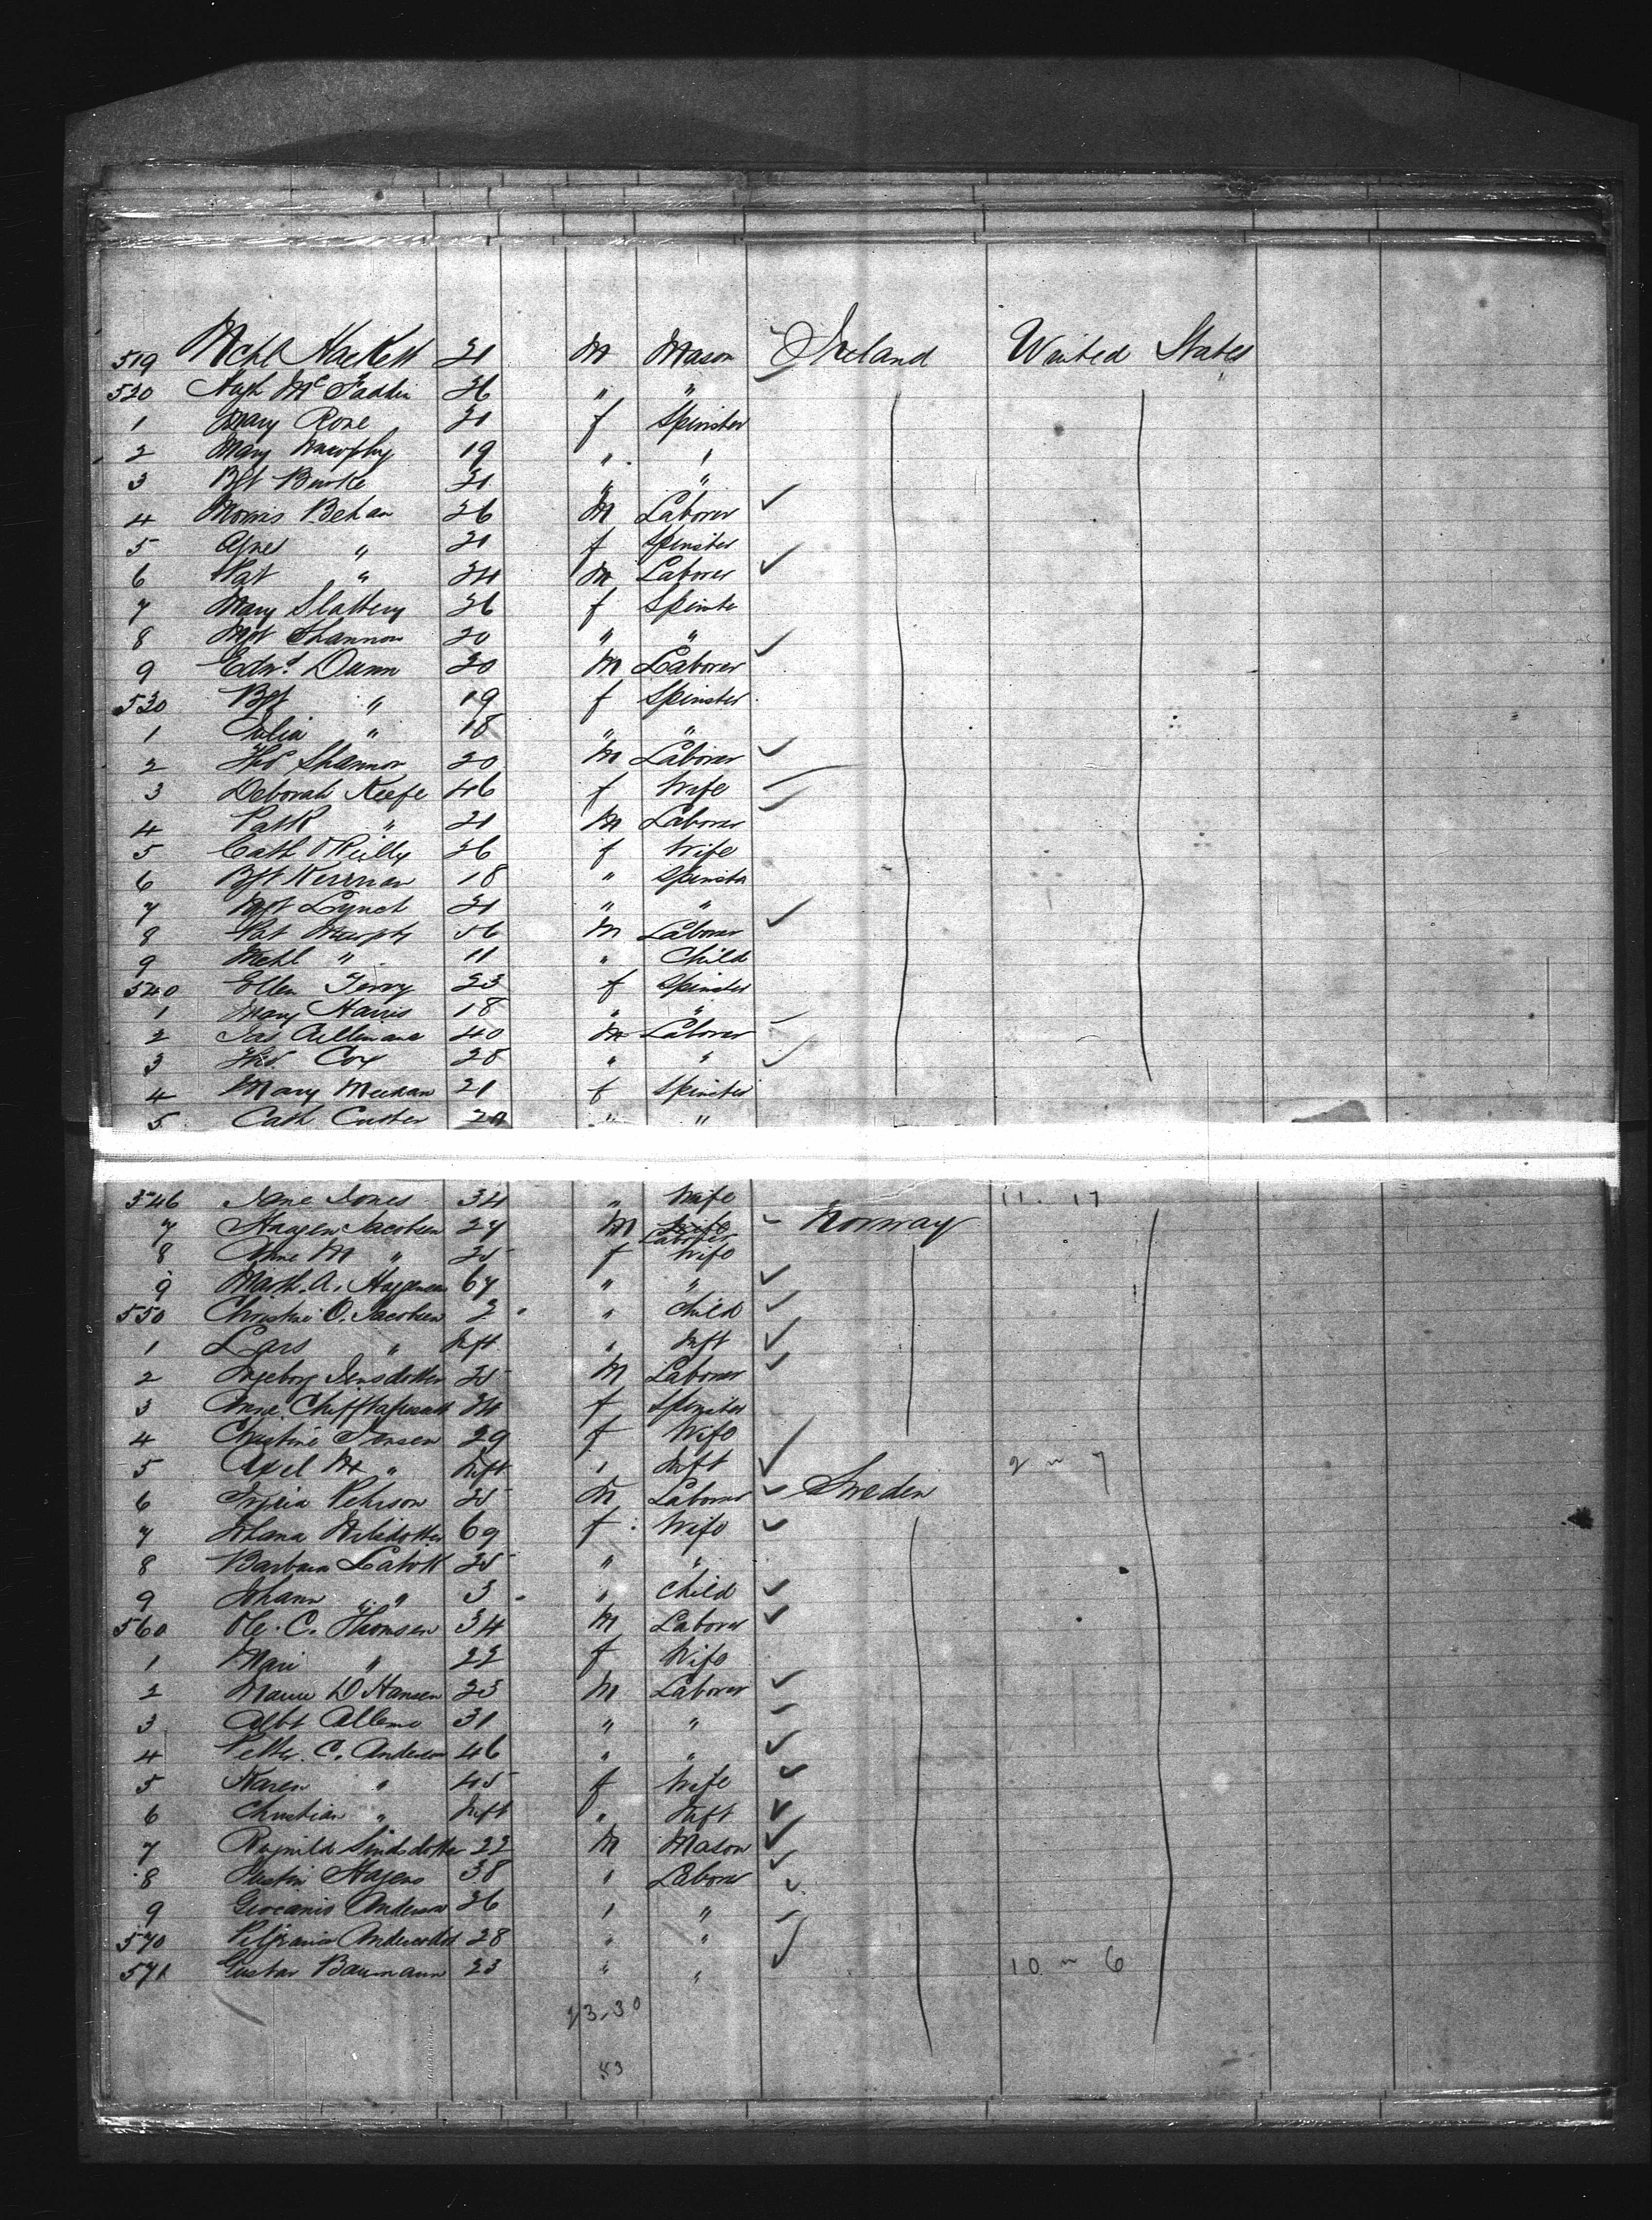 519 Mchl Hackett 21 M Mason Ireland United States
520 Hugh McFadden 26 " "
1 Mary Rose 21 f Spinster
2 Mary Murphy 19 " "
3 Bgt Burke 21 " "
4 Morris Behan 26 M Laborer
5 Agnes " 20 f Spinster
6 Pat " 24 M Laborer
7 Mary Slattery 26 f Spinste
8 Mgt Shannon 20 " "
9 Edwd Dunn 20 M Laborer
530 Bgt " 19 f Spinster
1 Julia " 18 " "
2 Thos Shannon 20 M Laborer
3 Deborah Keefe 46 f Wife
4 Patk " 21 M Laborer
5 Cath O'Reilly 26 f Wife
6 Bgt Kernan 18 " Spinster
7 Mgt Lynch 21 " "
8 Pat Murphy 56 M Laborer
9 Mchl " 11 " Child
540 Ellen Terry 23 f Spinster
1 Mary Harris 18 " "
2 Jas 40 M Laborer
3 Thos Cox 28 " "
4 Mary Meehan 21 f Spinster
5 Cath 20 " "
546 Jane Jones 34 " Wife 11. 17
7 Haagen Jacobsen 27 M Wife Laborer Norway
8 Anne M " 25 f Wife
9 Math. A. Hagensen 67 " "
550 Christine O. Jacobsen 2 " Child
1 Lars " Inft " Inft
2 Ingeborg Jensdotter 25 M Laborer
3 Anne 24 f Spinster
4 Christine Jensen 29 f Wife
5 Axel M " Inft " Inft 2 ~ 7
6 Pehrson 25 M Laborer Sweden
7 Nilsdotter 69 f Wife
8 Barbara 25 " "
9 Johann " 3 " Child
560 Ole. C. Thomsen 34 M Laborer
1 Mari " 22 f Wife
2 D Hansen 23 M Laborer
3 Albt 31 " "
4 Petter. C. Anderson 46 " "
5 Karen " 45 f Wife
6 Christian " Inft " Inft
7 Ragnild 22 M Mason
8 Justin Hagens 38 " Laborer
9 Anderson 26 " "
570 28 " "
571 Gustav Baumann 23 " " 10 ~ 6
23.30
53